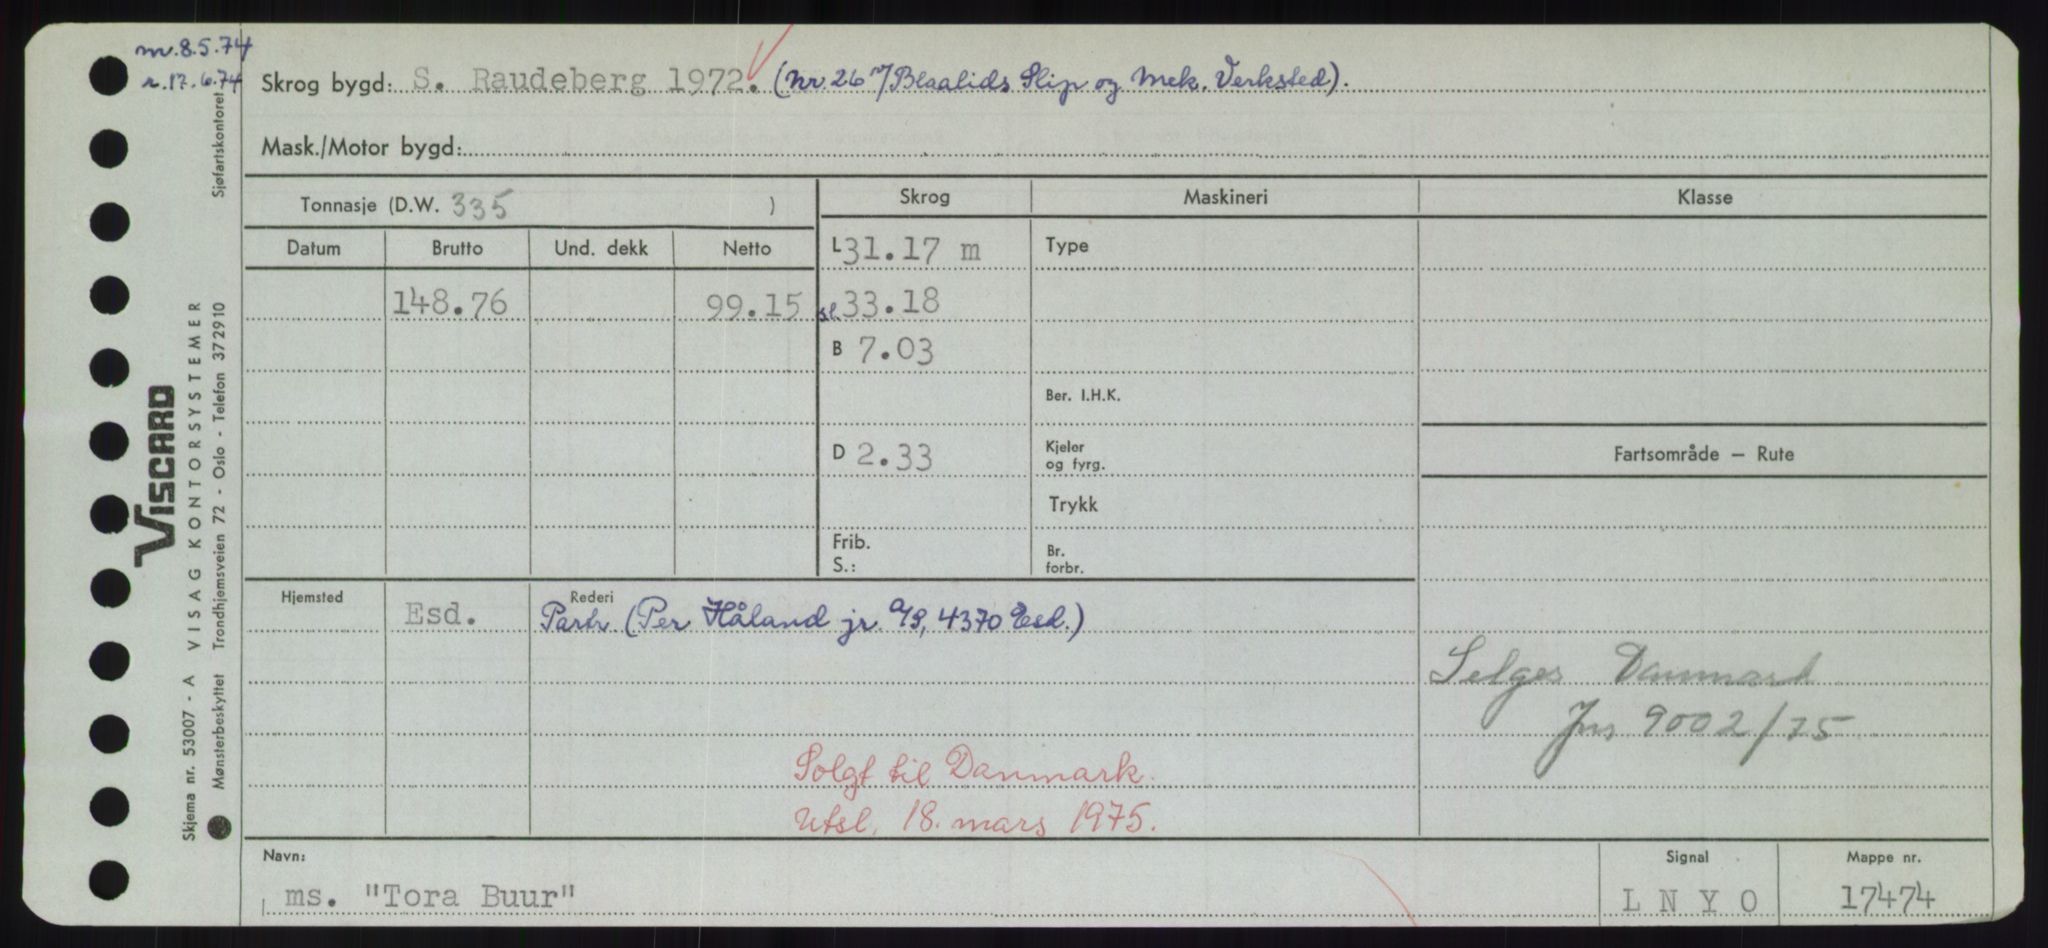 m. 8.5.74
r. 17.6.74
Skrog bygd: S. Raudeberg 1972. (Nr. 26 v/Blaalids Slip og Mek. Verksted).
Mask./Motor bygd:
Tonnasje (D.W. 335 )
Skrog Maskineri Klasse
Datum Brutto Und. dekk Netto
L 31.17 m Type
148.76 99.15 sl. 33.18
B 7.03
Ber. I.H.K.
D 2.33 Kjeler
og fyrg.
Fartsområde — Rute
Trykk
Frib. Br.
S.: forbr.
Hjemsted Esd. Rederi
Partr. (Per Håland jr. A/S, 4370 Esd.)
Selges Danmark
Jnr 9002/75
Solgt til Danmark.
Utsl. 18. mars 1975.
Navn: Signal Mappe nr.
ms. "Tora Buur" L N Y O 17474
Sjøfartskontoret
VISCARD
VISAG KONTORSYSTEMER
Trondhjemsveien 72 - Oslo - Telefon 372910
Skjema nr. 53007 - A
Mønsterbeskyttet